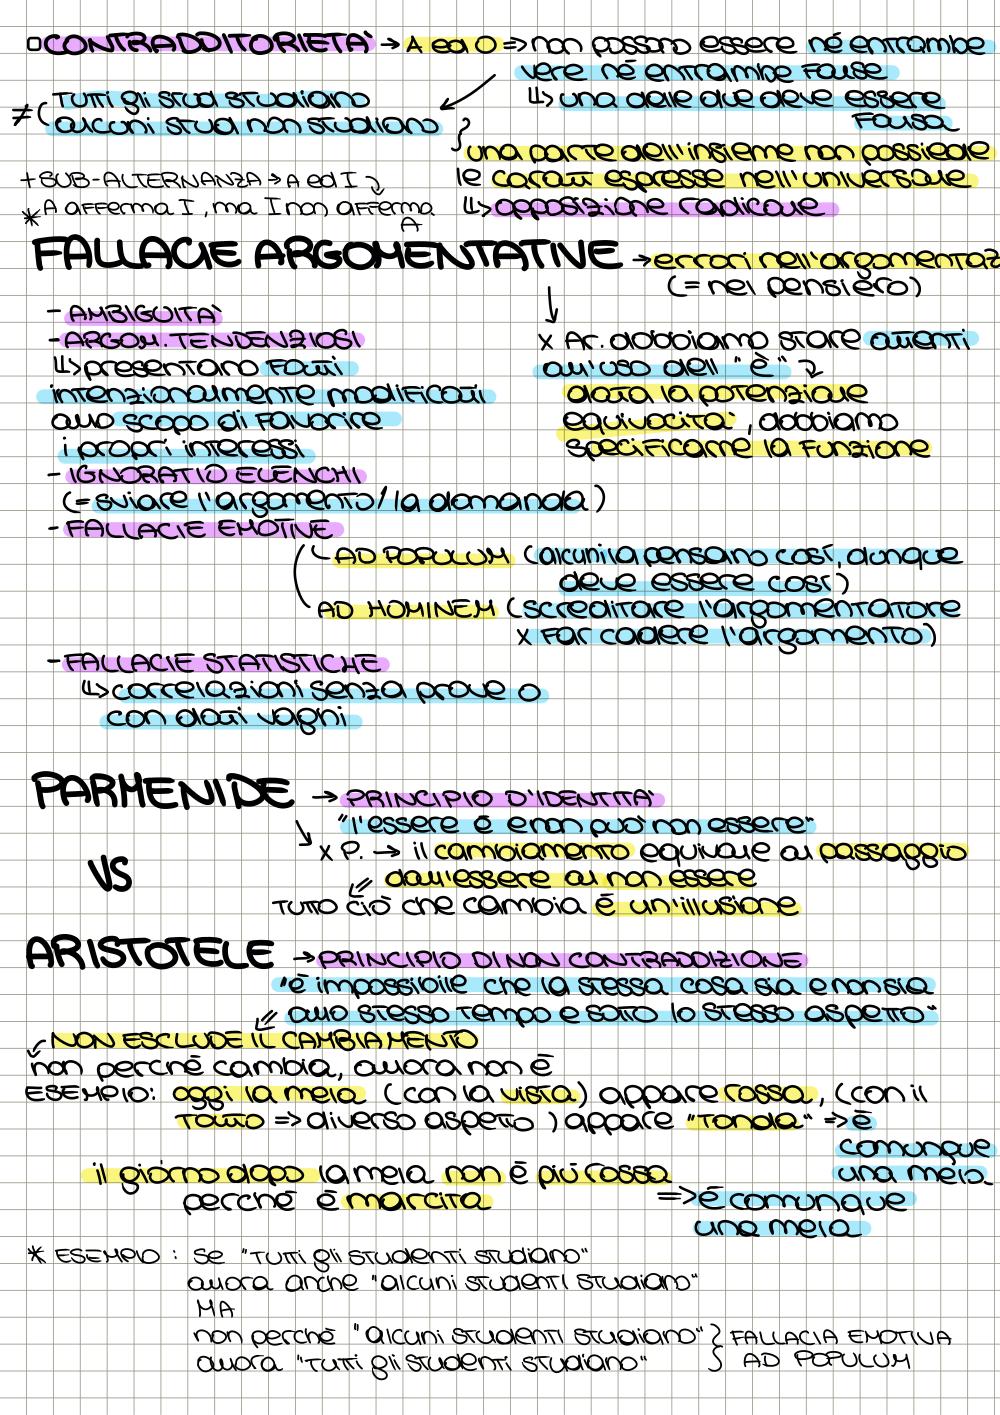 □ CONTRADDITORIETÀ → A ed O => non possono essere né entrambe
vere né entrambe false
↳ una delle due deve essere
falsa
≠ ( Tutti gli stud studiano
alcuni stud non studiano
una parte dell'insieme non possiede
le caratt espresse nell'universale
↳ opposizione radicale
+ SUB-ALTERNANZA → A ed I
* A afferma I, ma I non afferma
A
FALLACIE ARGOMENTATIVE → errori nell'argomentaz
(= nel pensiero)
- AMBIGUITÀ
- ARGOM. TENDENZIOSI
↳ presentano fatti
intenzionalmente modificati
allo scopo di favorire
i propri interessi
x Ar. dobbiamo stare attenti
all'uso dell "è"
data la potenziale
equivocità, dobbiamo
specificarne la funzione
- IGNORATIO ELENCHI
(= sviare l'argomento/la domanda)
- FALLACIE EMOTIVE
AD POPULUM (alcuni la pensano così, dunque
deve essere così)
AD HOMINEM (screditare l'argomentatore
x far cadere l'argomento)
- FALLACIE STATISTICHE
↳ correlazioni senza prove o
con dati vaghi
PARMENIDE → PRINCIPIO D'IDENTITÀ
"l'essere è e non può non essere"
x P. → il cambiamento equivale al passaggio
dall'essere al non essere
tutto ciò che cambia è un'illusione
VS
ARISTOTELE → PRINCIPIO DI NON CONTRADDIZIONE
"è impossibile che la stessa cosa sia e non sia
allo stesso tempo e sotto lo stesso aspetto"
NON ESCLUDE IL CAMBIAMENTO
non perché cambia, allora non è
ESEMPIO: oggi la mela (con la vista) appare rossa, (con il
tatto => diverso aspetto) appare "tonda" => è
comunque
una mela.
il giorno dopo la mela non è più rossa
perché è marcita
=> è comunque
una mela
* ESEMPIO : Se "Tutti gli studenti studiano"
allora anche "alcuni studenti studiano"
MA
non perché "alcuni studenti studiano" } FALLACIA EMOTIVA
allora "Tutti gli studenti studiano" AD POPULUM